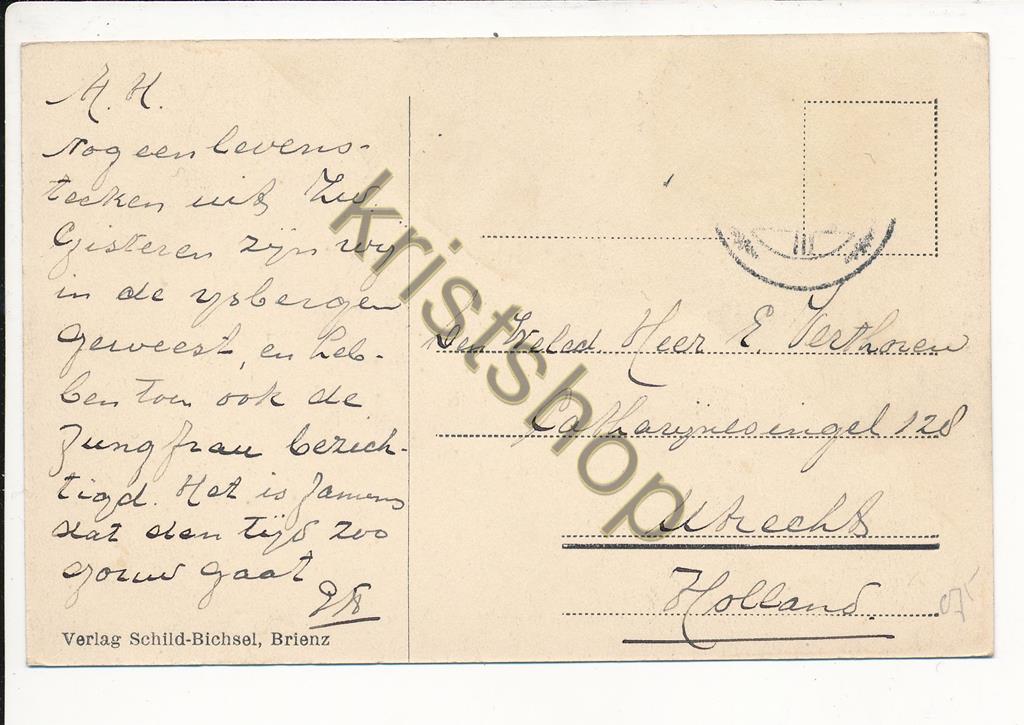 A. H.
Nog een levens-
teeken uit Zw.
Gisteren zijn wij
in de ysbergen
geweest, en heb-
ben toen ook de
Jungfrau bezich-
tigd. Het is jammer
dat den tijd zoo
gouw gaat
Verlag Schild-Bichsel, Brienz
Den Weled. Heer E. Verhoren
Catharijnesingel 128
Utrecht
Holland.
kristshop